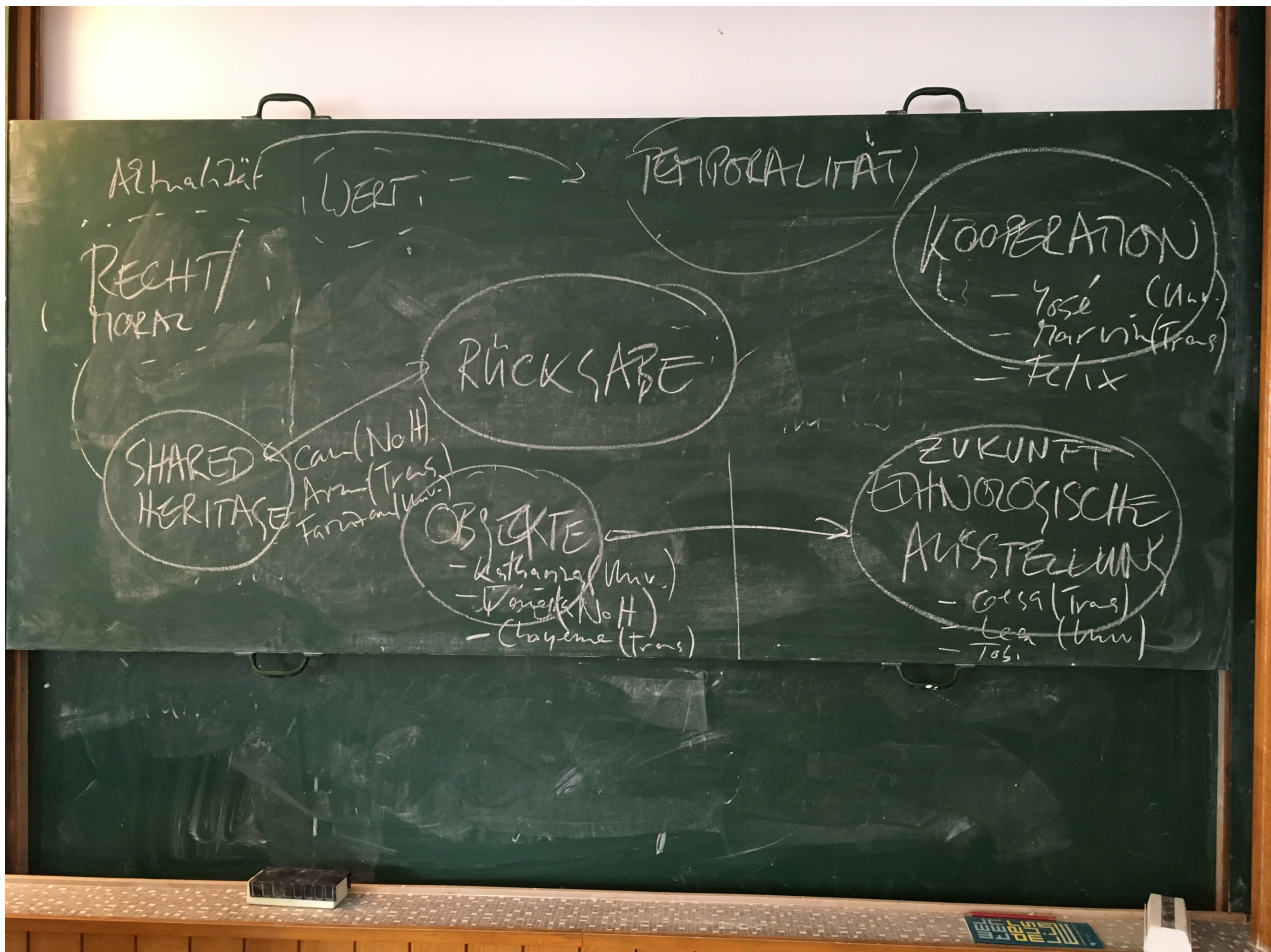 Aktualität
WERT
TEMPORALITÄT
RECHT/
MORAL
KOOPERATION
- José (Univ.)
- Marvin (Trans)
- Felix
RÜCKGABE
SHARED
HERITAGE
Can (NoH)
(Trans)
(Univ.)
OBJEKTE
- Katharina (Univ.)
(NoH)
- Chayenne (Trans)
ZUKUNFT
ETHNOLOGISCHE
AUSSTELLUNG
- Gesa (Trans)
- Lea (Univ)
- Tobi